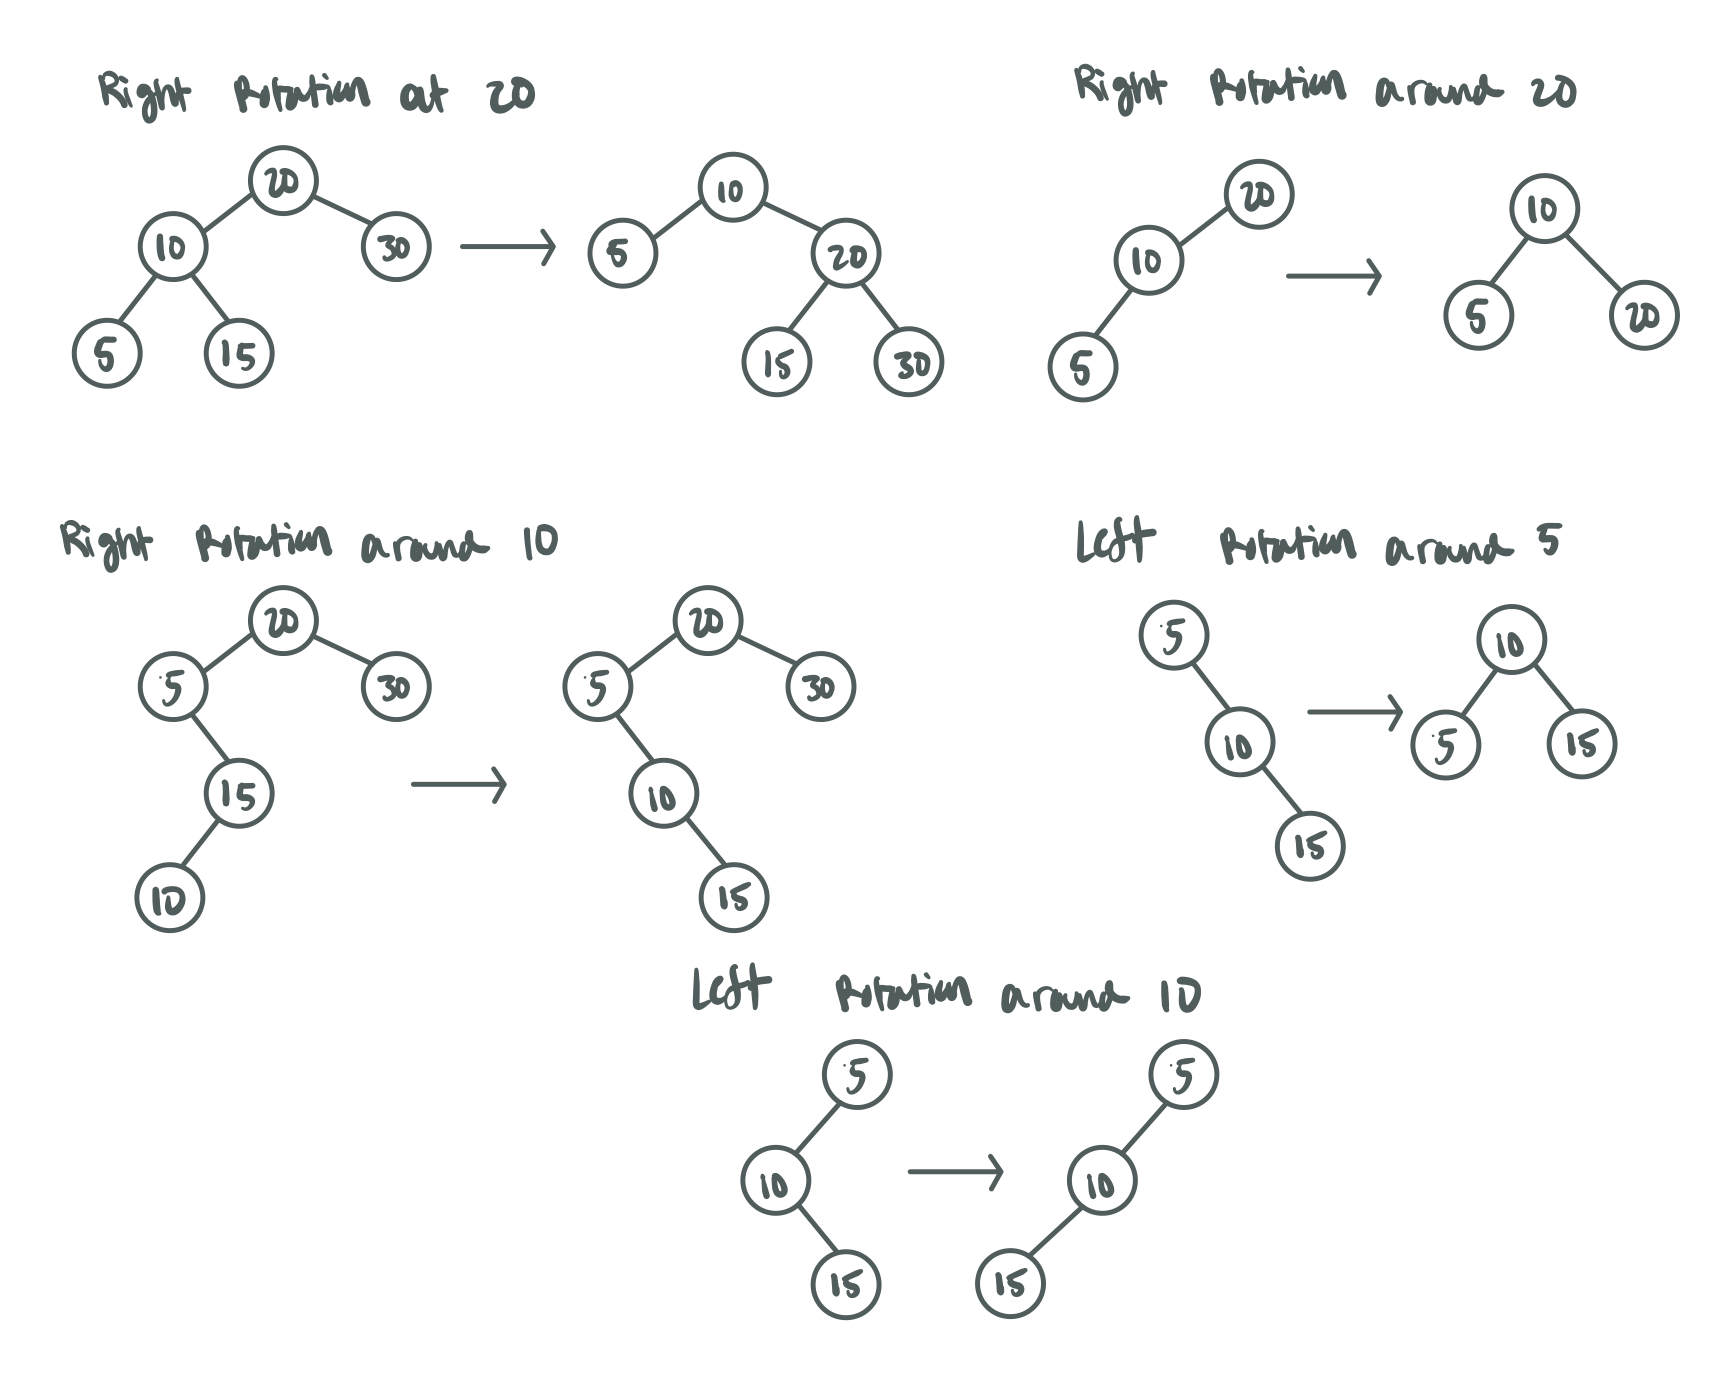 Right Rotation at 20
20
10
30
5
15
10
5
20
15
30
Right Rotation around 20
20
10
5
10
5
20
Right Rotation around 10
20
5
30
15
10
20
5
30
10
15
Left Rotation around 5
5
10
15
10
5
15
Left Rotation around 10
5
10
15
5
10
15